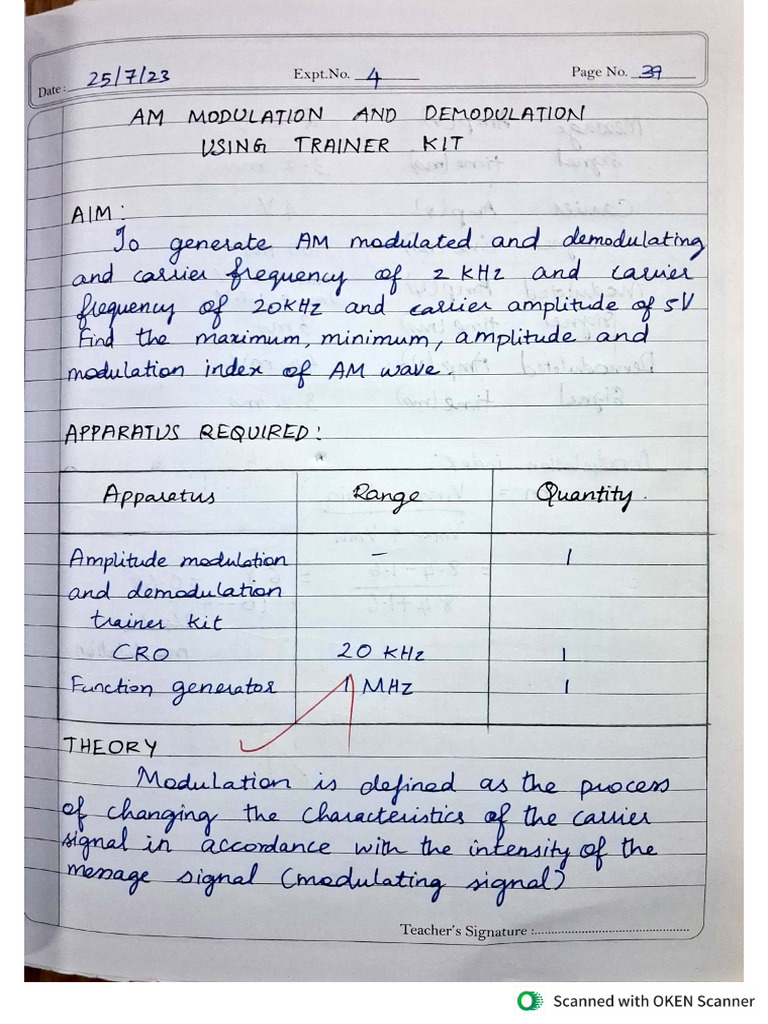 Date: 25/7/23 Expt.No. 4 Page No. 39
AM MODULATION AND DEMODULATION
USING TRAINER KIT
AIM:
To generate AM modulated and demodulating
and carrier frequency of 2 KHz and carrier
frequency of 20KHz and carrier amplitude of 5V
Find the maximum, minimum, amplitude and
modulation index of AM wave.
APPARATUS REQUIRED:
Apparatus Range Quantity.
Amplitude modulation – 1
and demodulation
trainer kit
CRO 20 KHz 1
Function generator 1 MHz 1
THEORY
Modulation is defined as the process
of changing the characteristics of the carrier
signal in accordance with the intensity of the
message signal (modulating signal)
Teacher's Signature :
Scanned with OKEN Scanner